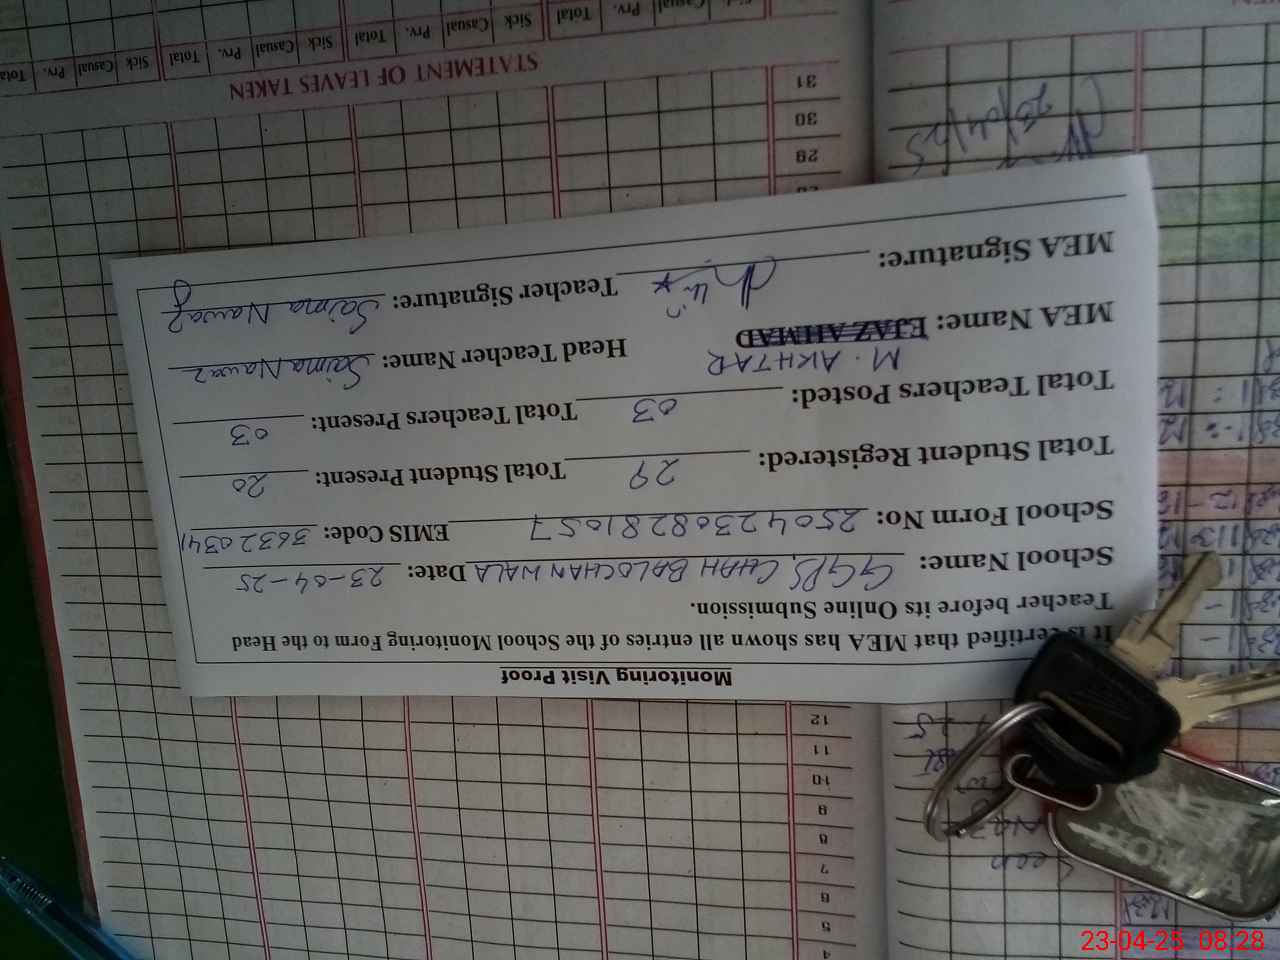 Monitoring Visit Proof
It is certified that MEA has shown all entries of the School Monitoring Form to the Head
Teacher before its Online Submission.
School Name: GGPS, CHAH BALOCHAN WALA Date: 23-04-25
School Form No: 25042308281057 EMIS Code: 36320341
Total Student Registered: 29 Total Student Present: 20
Total Teachers Posted: 03 Total Teachers Present: 03
M. AKHTAR
MEA Name: EJAZ AHMAD Head Teacher Name: Saima Nawaz
MEA Signature: Teacher Signature: Saima Nawaz
STATEMENT OF LEAVES TAKEN
Total Prv. Casual Sick Total Prv. Casual Sick Total Prv. Casual Sick Total
Sick Casual Prv. Total Sick Casual Prv. Total Sick
4
5
6
7
8
9
10
11
12
29
30
31
23/04/25
HONDA
23-04-25 08:28